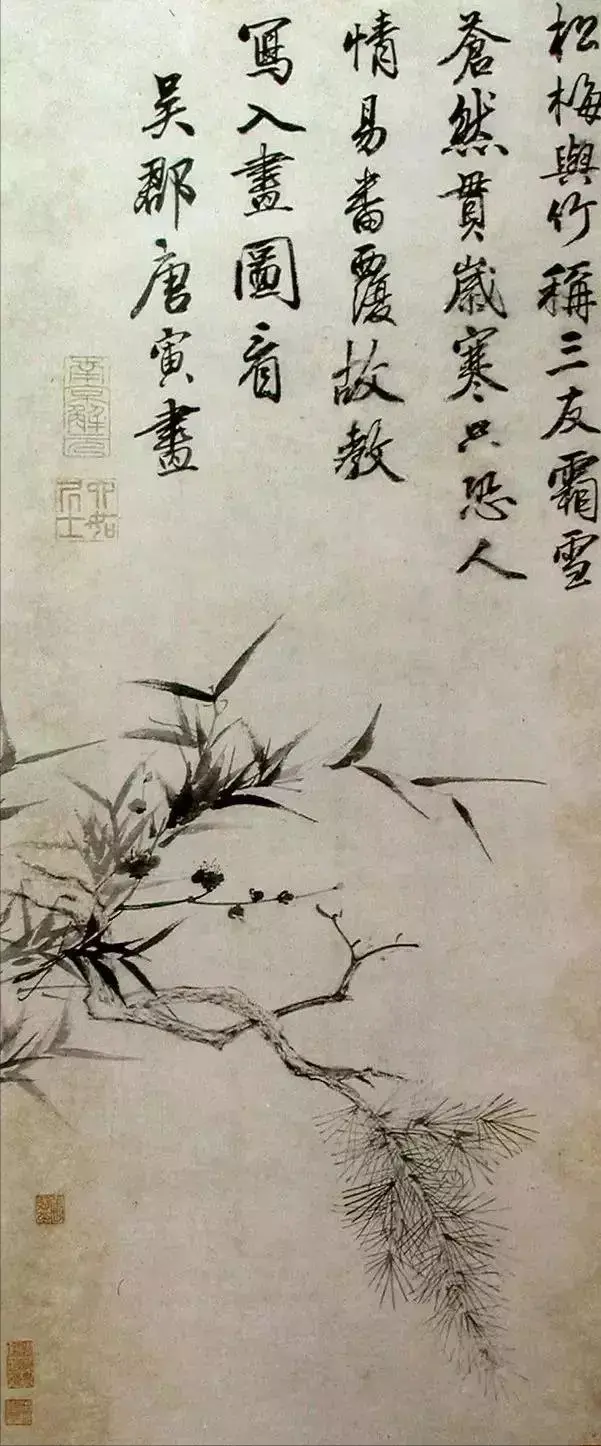 松梅與竹稱三友霜雪
蒼然貫歲寒只恐人
情易畨覆故教
寫入畫圖看
吳郡唐寅畫
南京解元
六如居士